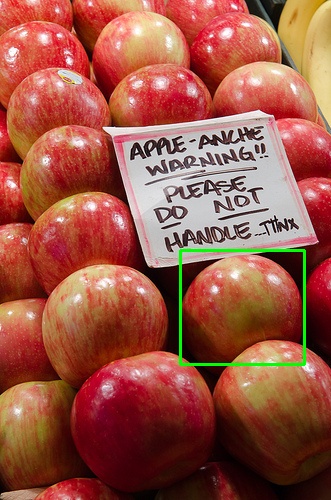 APPLE-ANCHE
WARNING!!
PLEASE
DO NOT
HANDLE...THNX